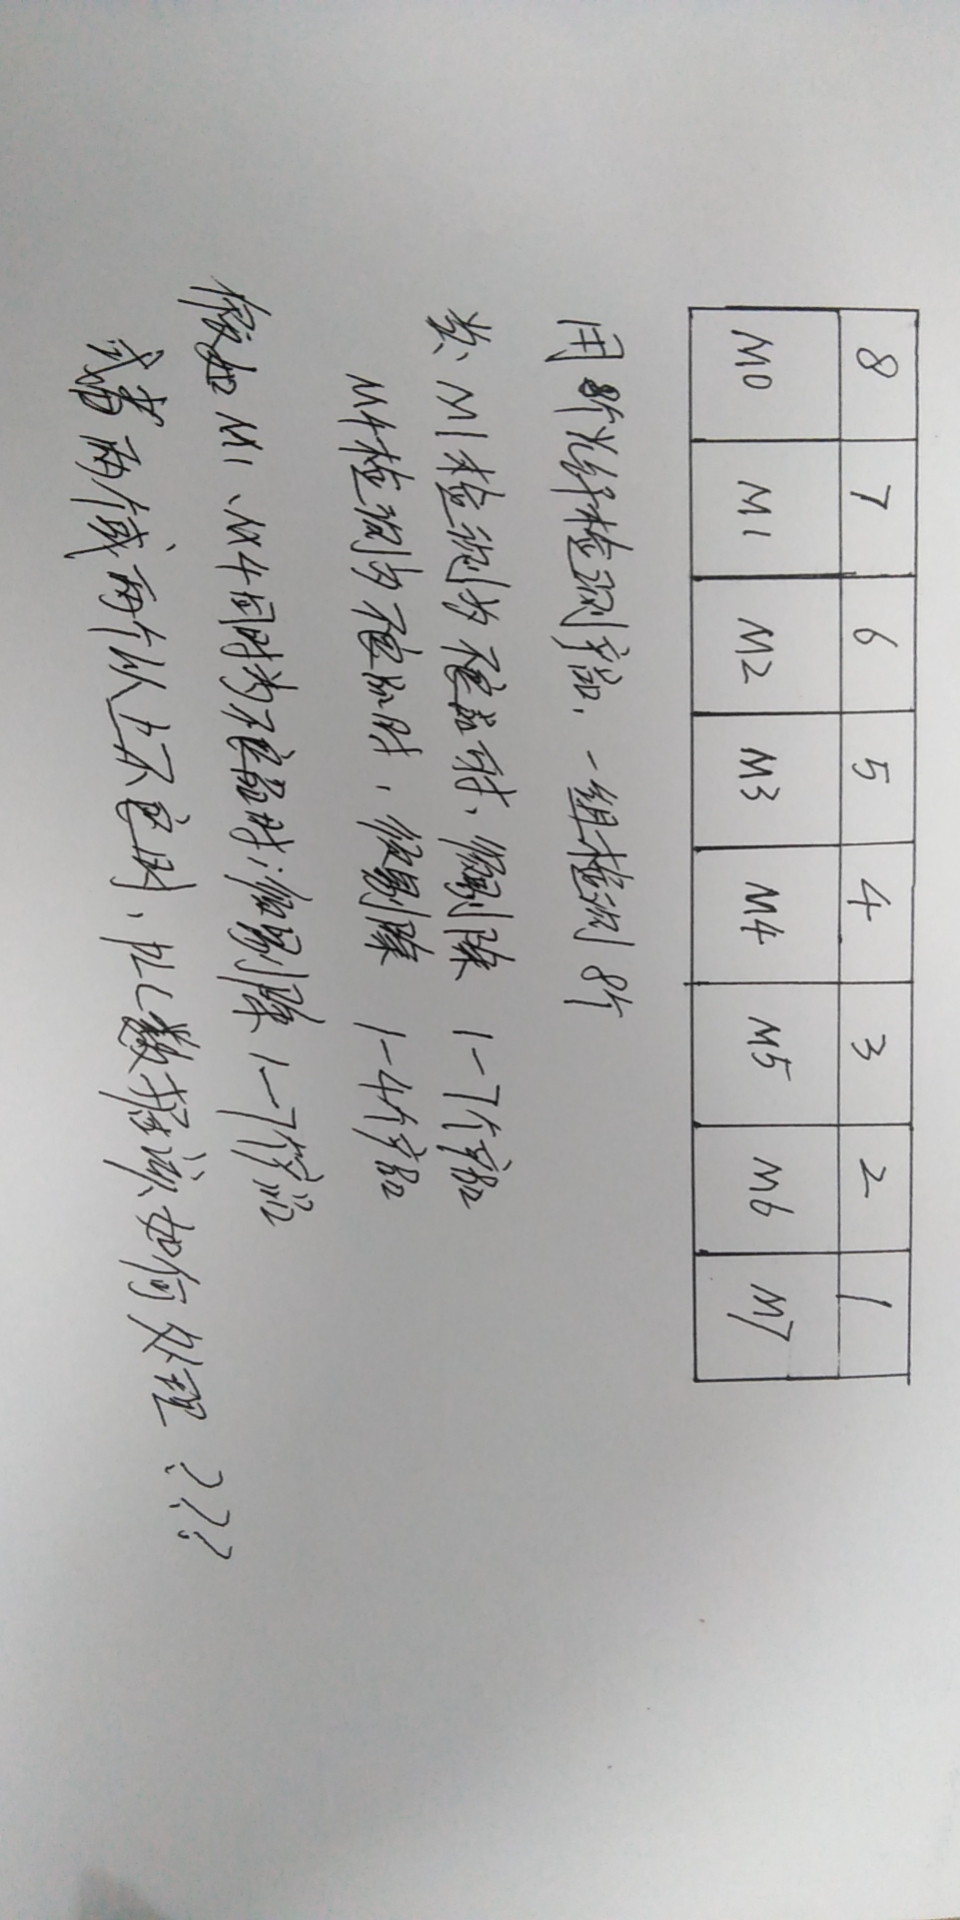 8 7 6 5 4 3 2 1
M0 M1 M2 M3 M4 M5 M6 M7
用8个光纤检测产品,一组检测8个
若、M1检测为不良品时、须剔除 1-7个产品
M4检测为不良品时,须剔除 1-4个产品
假如 M1、M4同时为不良品时;须剔除 1-7个产品
或者两个或两个以上不良时、PLC数据该如何处理???